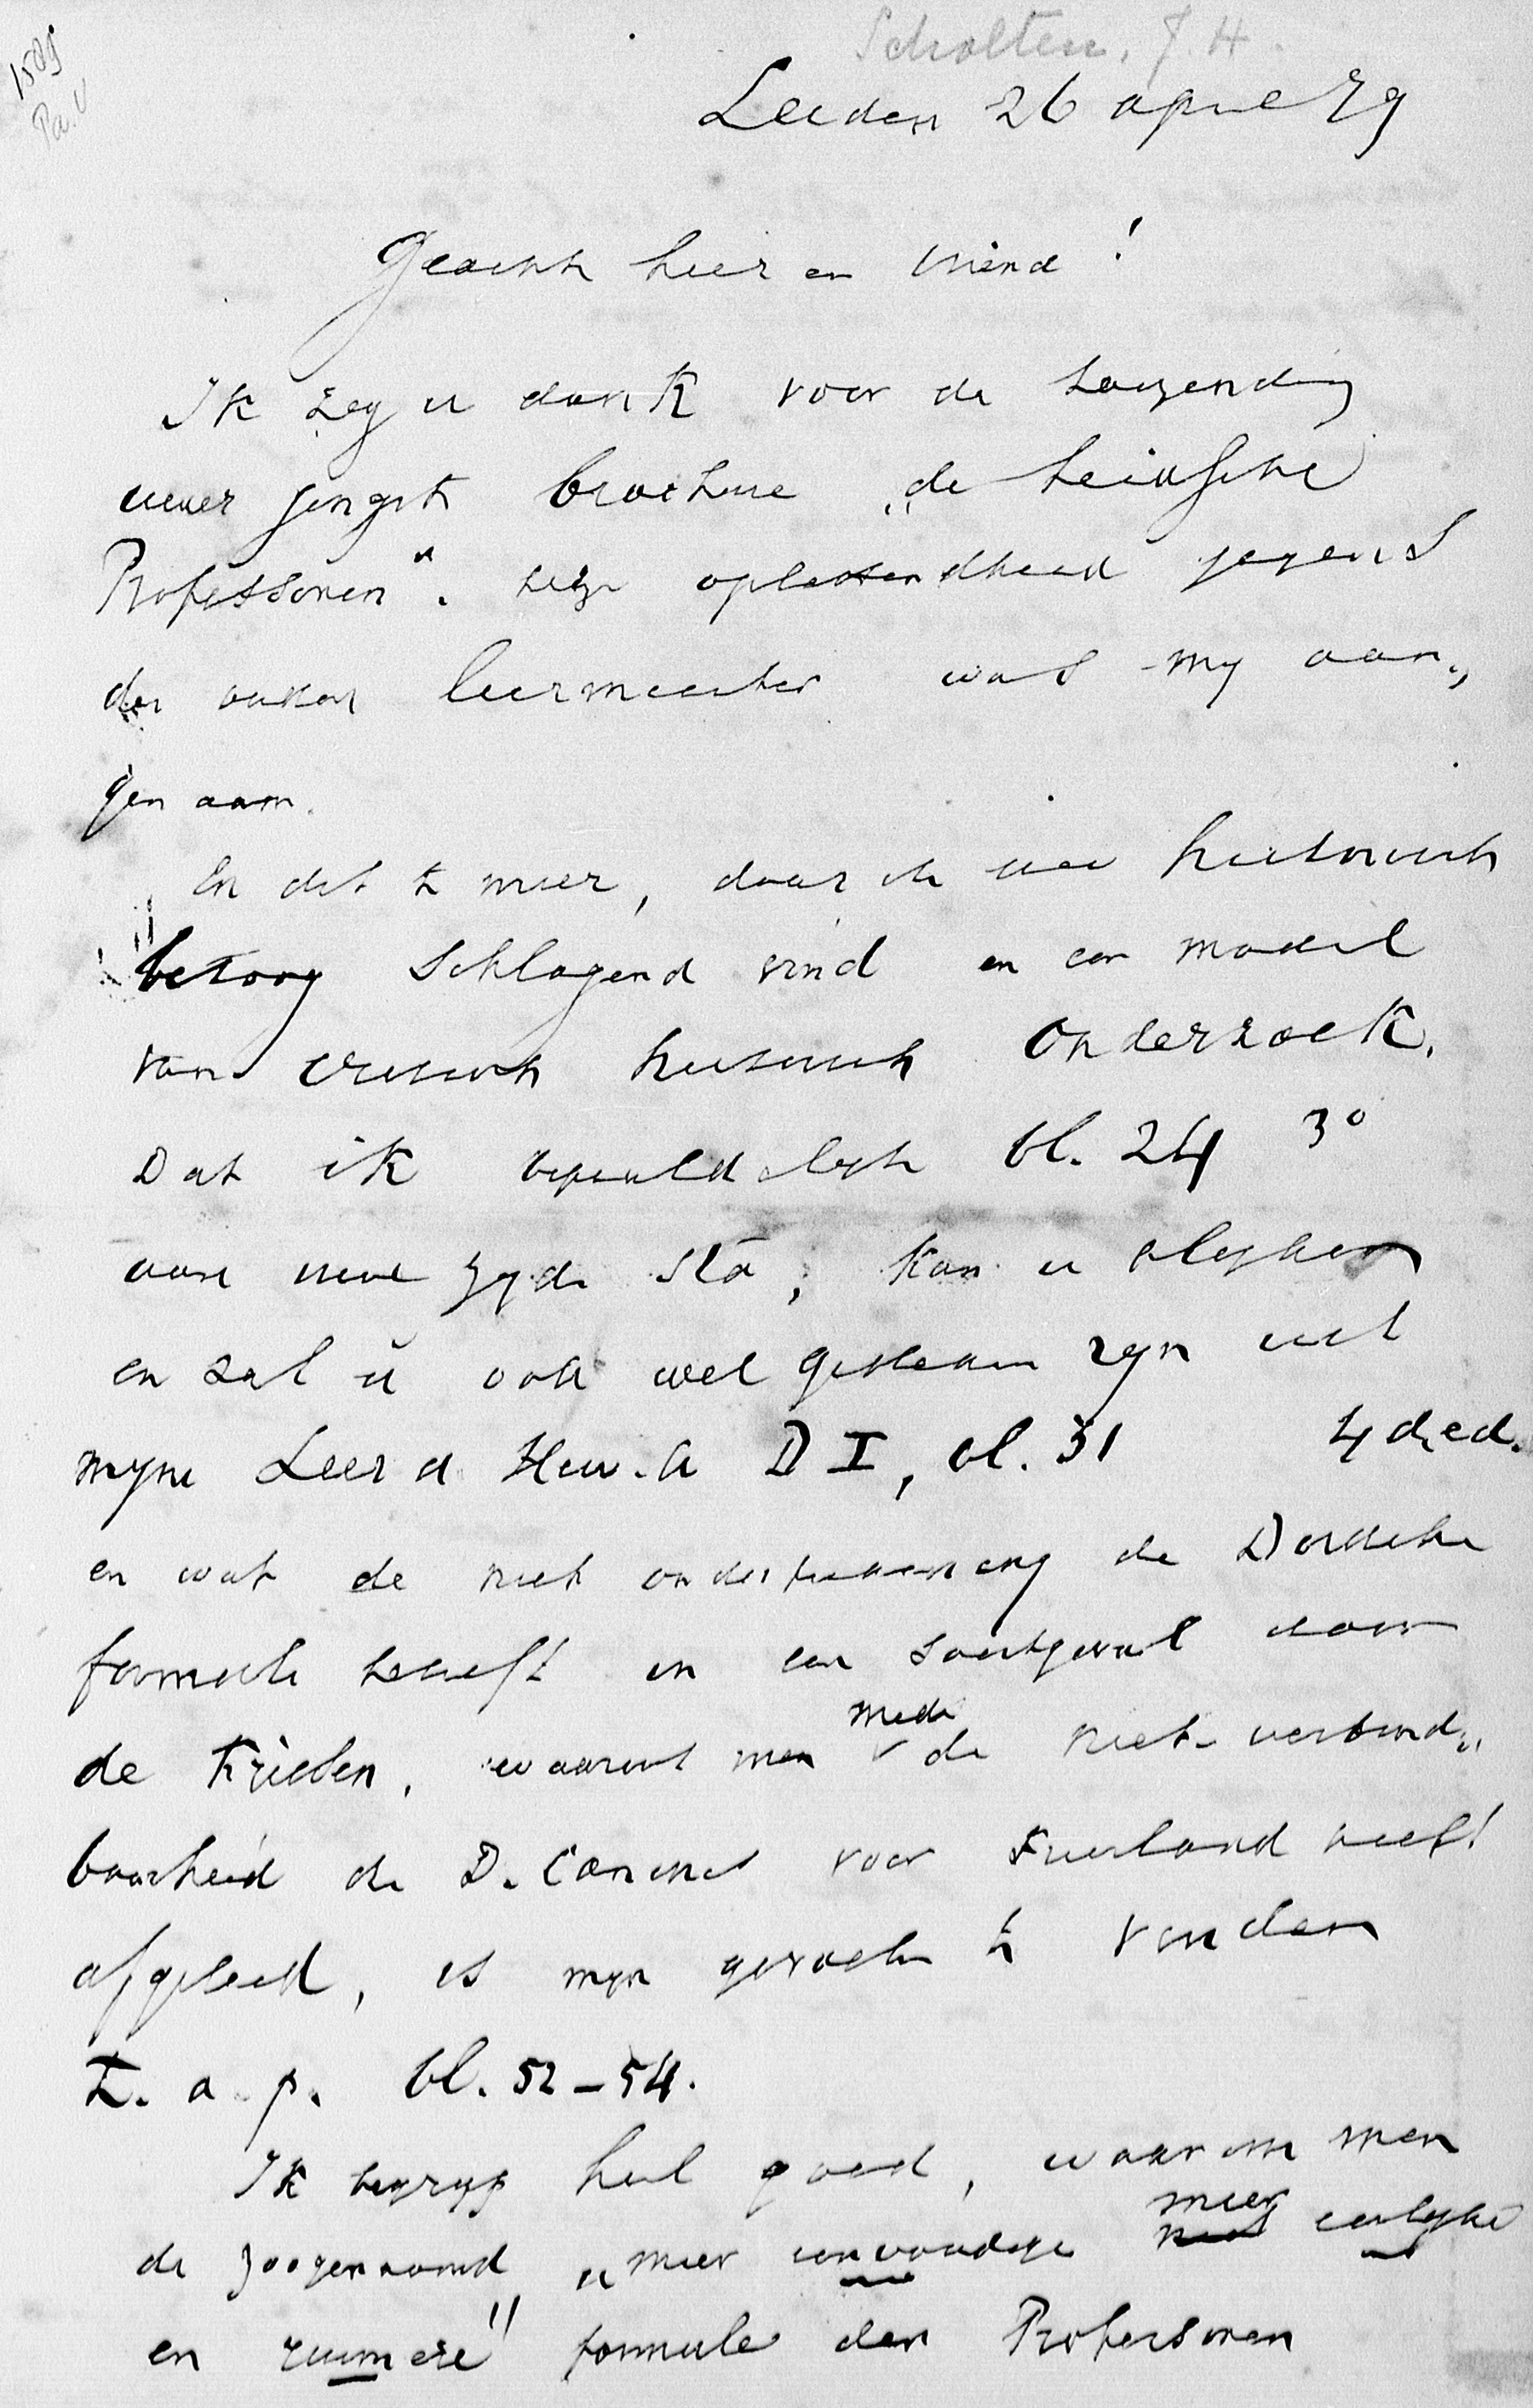 1505
Pa. V
Scholten, J. H.
Leiden 26 april 79
Geachte heer en vriend!
Ik zeg u dank voor de toezending
uwer jongste brochure „de Leidsche
Professoren“. Uwe oplettendheid jegens
den ouden leermeester was mij aan„
genaam.
En dit te meer, daar ik uw historisch
betoog schlagend vind en een model
van critisch historisch onderzoek.
Dat ik bepaaldelijk bl. 24 3o
aan uwe zyde sta, kan u blyken
en zal u ook wel gebleken zyn uit
myne Leer d Herv. K D I, bl. 31 4de ed.
en wat de niet ondertekening de Dordsche
formule betreft in een soortgeval door
de Friesen, waaruit men mede de niet verbind„
baarheid de D. Canones voor Friesland heeft
afgeleid, is myn gevoelen te vinden
t. a. p. bl. 52-54.
Ik begryp heel goed, waarom men
de zoogenaamd „meer eenvoudige meer eerlyke
en ruimere" formule der Professoren